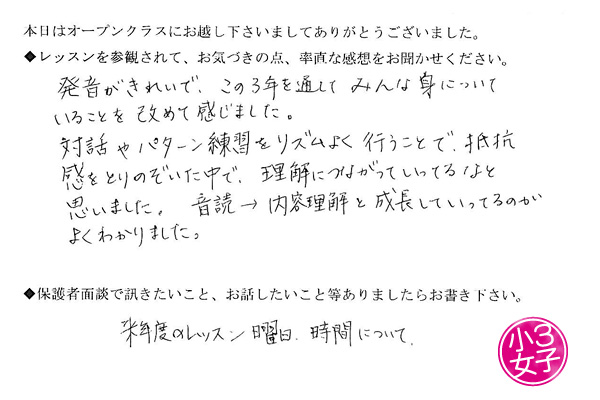 本日はオープンクラスにお越し下さいましてありがとうございました。
◆レッスンを参観されて、お気づきの点、率直な感想をお聞かせください。
発音がきれいで、この3年を通して みんな身について
いることを 改めて感じました。
対話やパターン練習をリズムよく 行うことで、抵抗
感をとりのぞいた中で、理解につながっていってるなと
思いました。 音読→内容理解と成長していってるのが
よくわかりました。
◆保護者面談で訊きたいこと、お話したいこと等ありましたらお書き下さい。
来年度のレッスン曜日、時間について。
小3
女子